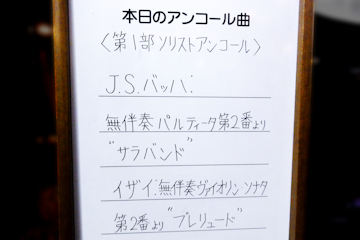 本日のアンコール曲
〈第1部 ソリストアンコール〉
J.S.バッハ:
無伴奏パルティータ第2番より
"サラバンド"
イザイ:無伴奏ヴァイオリンソナタ
第2番より"プレリュード"